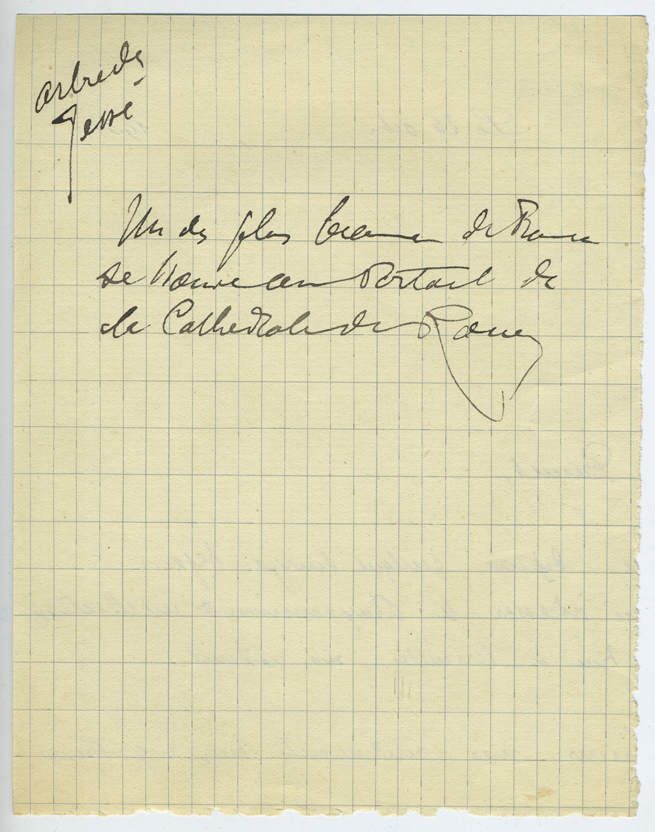 arbre de
Jessé
Un des plus beaux de France
se trouve au Portail de
la Cathédrale de Rouen